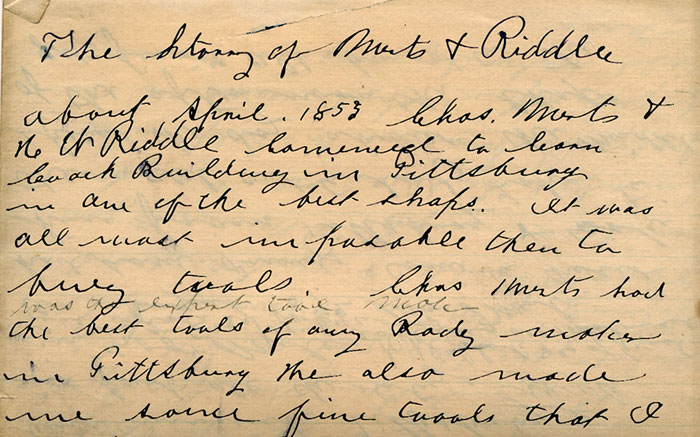 The Storry of Merts & Riddle
about April. 1853 Chas. Merts &
H W Riddle Comenced to learn
Coach Building in Pittsburg
in one of the best shops. It was
all most imposable then to
buey tools. Chas Merts had
was an expert tool maker
the best tools of any Body maker
in Pittsburg He also made
me some fine tools that I